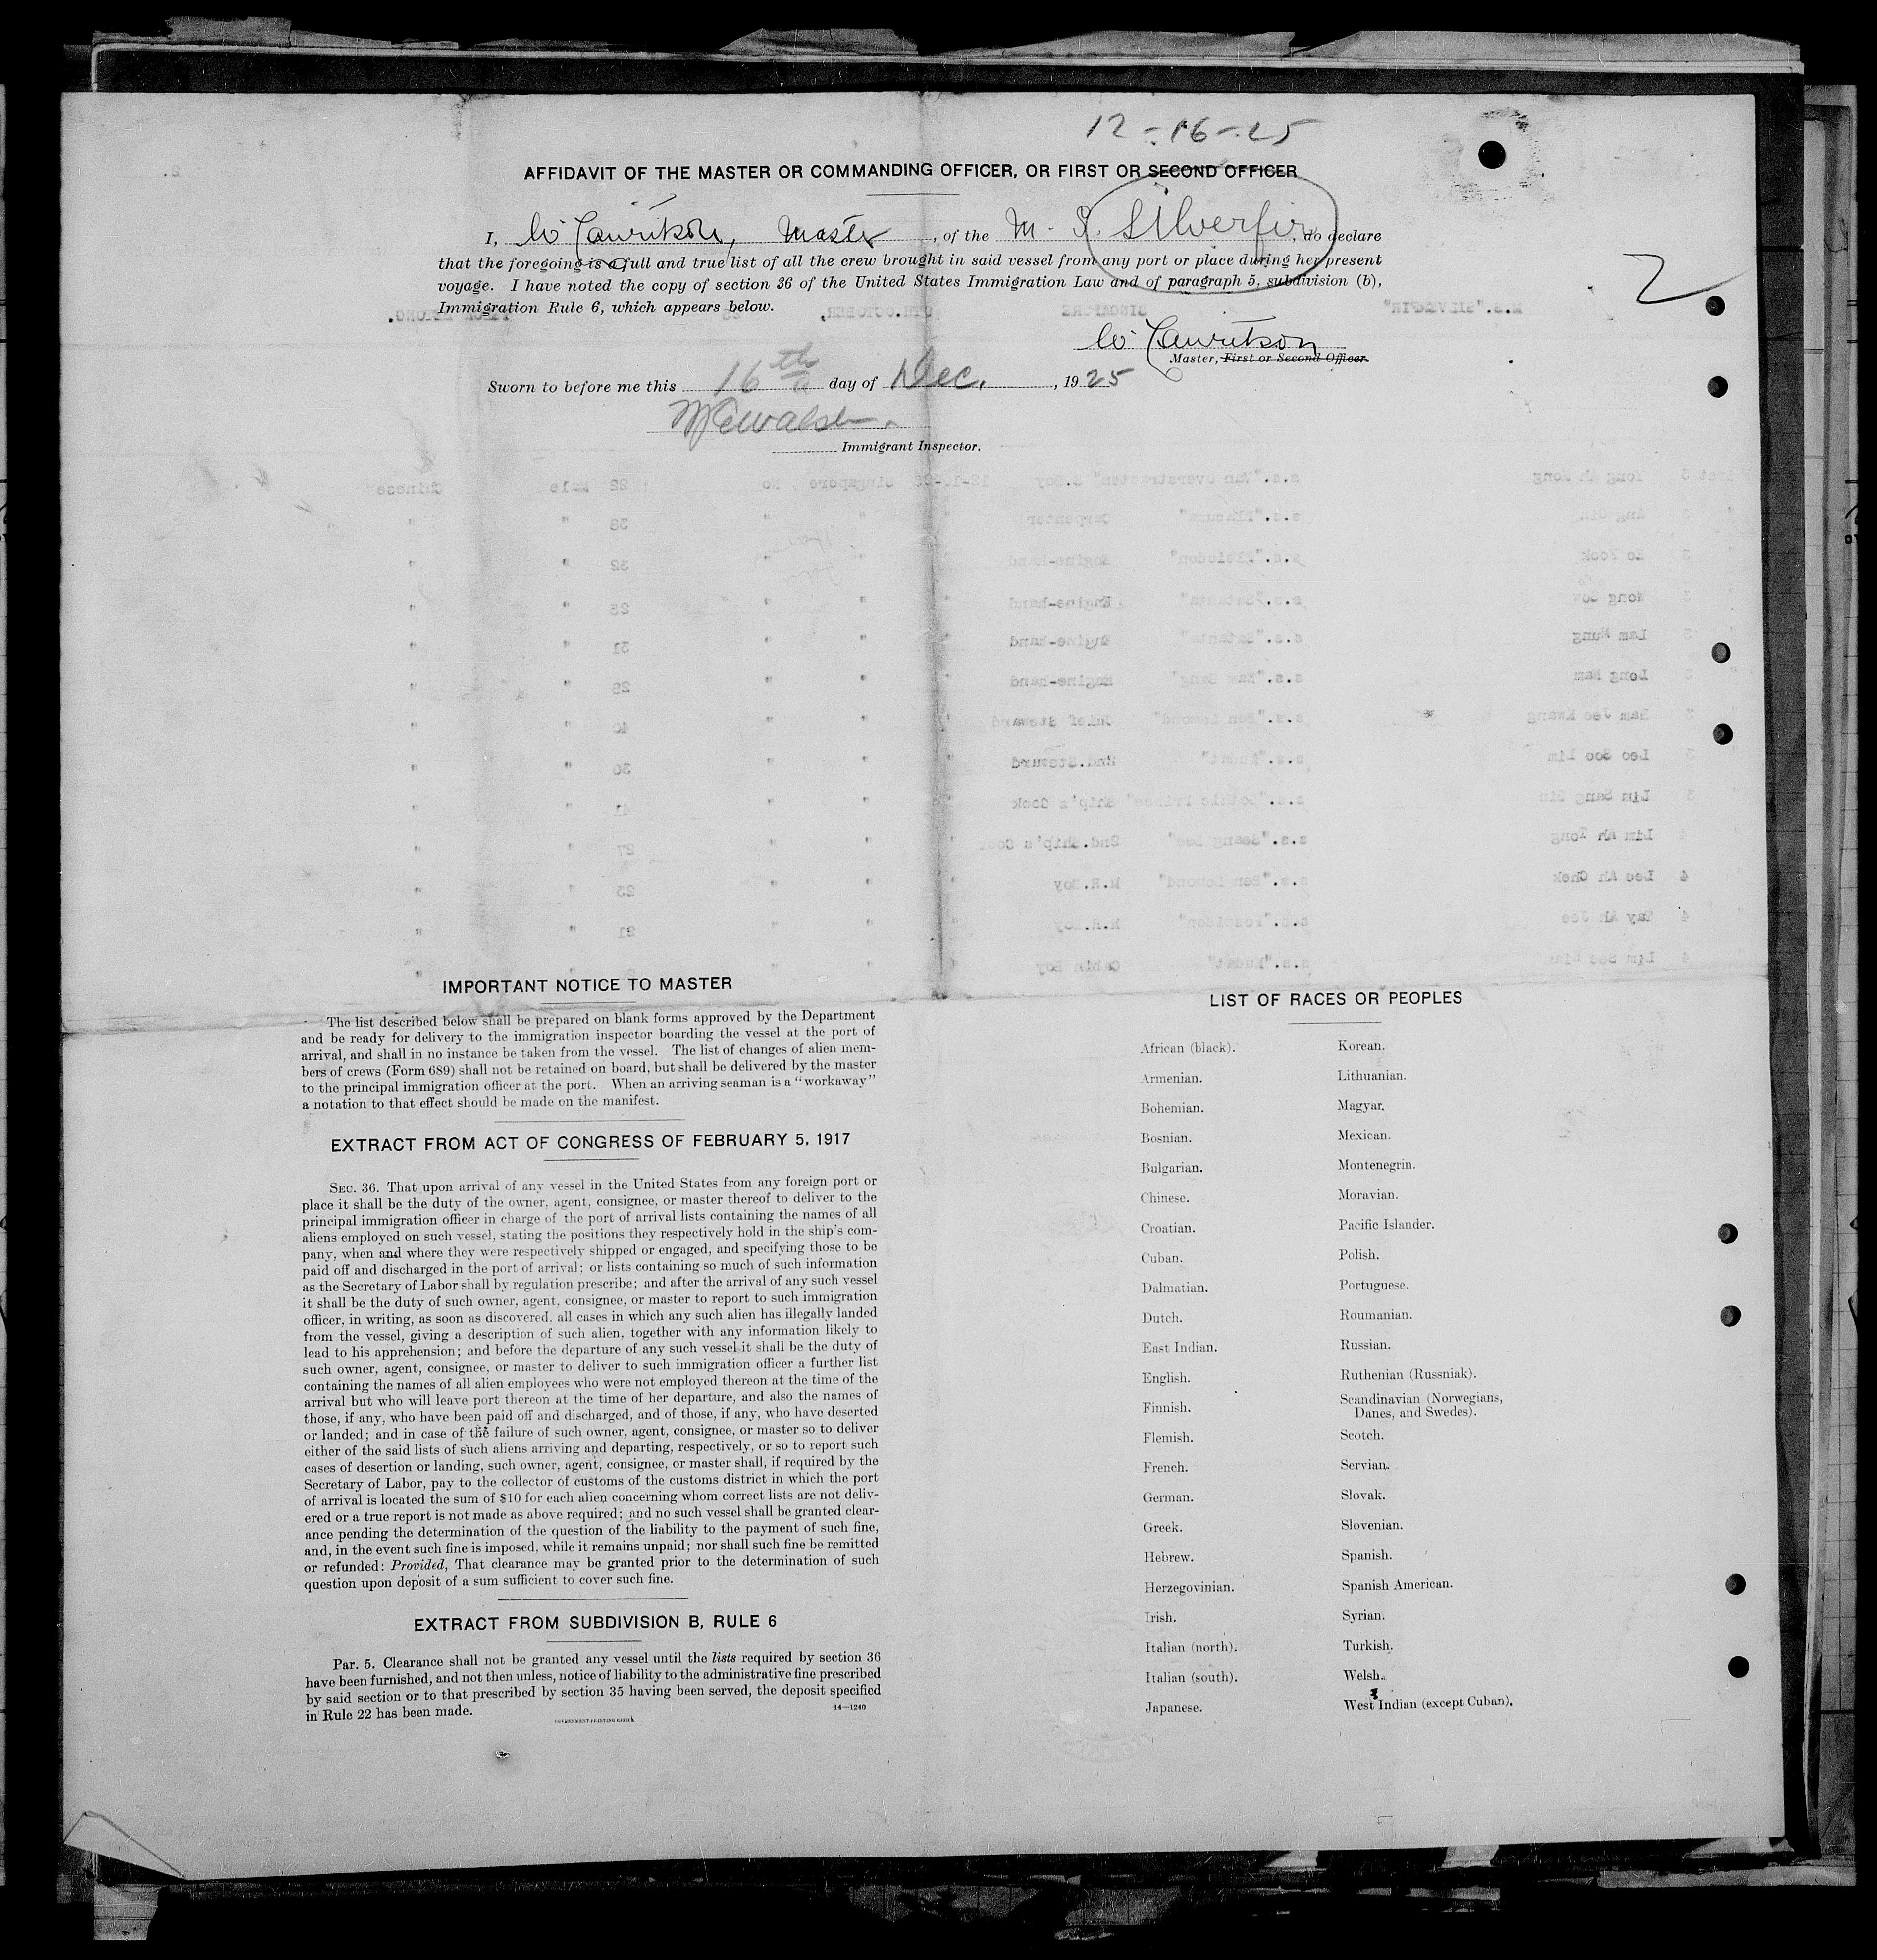 12-16-25
AFFIDAVIT OF THE MASTER OR COMMANDING OFFICER, OR FIRST OR SECOND OFFICER
I, W Lauritson, Master, of the M. S. Silverfir, do declare
that the foregoing is a full and true list of all the crew brought in said vessel from any port or place during her present
voyage. I have noted the copy of section 36 of the United States Immigration Law and of paragraph 5, subdivision (b),
Immigration Rule 6, which appears below.
2
W Lauritson
Master, First or Second Officer.
Sworn to before me this 16th day of Dec., 1925
Immigrant Inspector.
IMPORTANT NOTICE TO MASTER
The list described below shall be prepared on blank forms approved by the Department
and be ready for delivery to the immigration inspector boarding the vessel at the port of
arrival, and shall in no instance be taken from the vessel. The list of changes of alien mem-
bers of crews (Form 689) shall not be retained on board, but shall be delivered by the master
to the principal immigration officer at the port. When an arriving seaman is a "workaway"
a notation to that effect should be made on the manifest.
EXTRACT FROM ACT OF CONGRESS OF FEBRUARY 5, 1917
SEC. 36. That upon arrival of any vessel in the United States from any foreign port or
place it shall be the duty of the owner, agent, consignee, or master thereof to deliver to the
principal immigration officer in charge of the port of arrival lists containing the names of all
aliens employed on such vessel, stating the positions they respectively hold in the ship's com-
pany, when and where they were respectively shipped or engaged, and specifying those to be
paid off and discharged in the port of arrival; or lists containing so much of such information
as the Secretary of Labor shall by regulation prescribe; and after the arrival of any such vessel
it shall be the duty of such owner, agent, consignee, or master to report to such immigration
officer, in writing, as soon as discovered, all cases in which any such alien has illegally landed
from the vessel, giving a description of such alien, together with any information likely to
lead to his apprehension; and before the departure of any such vessel it shall be the duty of
such owner, agent, consignee, or master to deliver to such immigration officer a further list
containing the names of all alien employees who were not employed thereon at the time of the
arrival but who will leave port thereon at the time of her departure, and also the names of
those, if any, who have been paid off and discharged, and of those, if any, who have deserted
or landed; and in case of the failure of such owner, agent, consignee, or master so to deliver
either of the said lists of such aliens arriving and departing, respectively, or so to report such
cases of desertion or landing, such owner, agent, consignee, or master shall, if required by the
Secretary of Labor, pay to the collector of customs of the customs district in which the port
of arrival is located the sum of $10 for each alien concerning whom correct lists are not deliv-
ered or a true report is not made as above required; and no such vessel shall be granted clear-
ance pending the determination of the question of the liability to the payment of such fine,
and, in the event such fine is imposed, while it remains unpaid; nor shall such fine be remitted
or refunded: Provided, That clearance may be granted prior to the determination of such
question upon deposit of a sum sufficient to cover such fine.
EXTRACT FROM SUBDIVISION B, RULE 6
Par. 5. Clearance shall not be granted any vessel until the lists required by section 36
have been furnished, and not then unless, notice of liability to the administrative fine prescribed
by said section or to that prescribed by section 35 having been served, the deposit specified
in Rule 22 has been made.
14—1240
GOVERNMENT PRINTING OFFICE
LIST OF RACES OR PEOPLES
African (black).
Armenian.
Bohemian.
Bosnian.
Bulgarian.
Chinese.
Croatian.
Cuban.
Dalmatian.
Dutch.
East Indian.
English.
Finnish.
Flemish.
French.
German.
Greek.
Hebrew.
Herzegovinian.
Irish.
Italian (north).
Italian (south).
Japanese.
Korean.
Lithuanian.
Magyar.
Mexican.
Montenegrin.
Moravian.
Pacific Islander.
Polish.
Portuguese.
Roumanian.
Russian.
Ruthenian (Russniak).
Scandinavian (Norwegians,
Danes, and Swedes).
Scotch.
Servian.
Slovak.
Slovenian.
Spanish.
Spanish American.
Syrian.
Turkish.
Welsh.
West Indian (except Cuban).